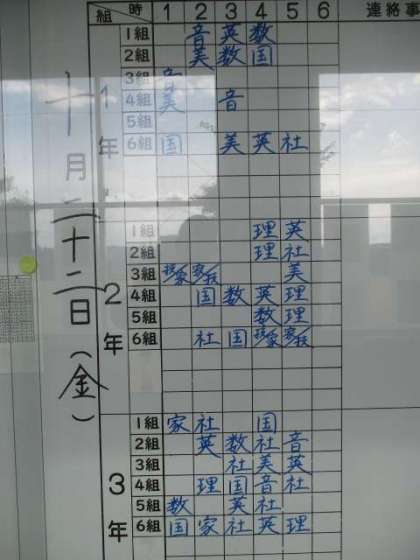 組 時 1 2 3 4 5 6 連絡事
十一月二十二日(金)
1年
1組 音 英 数
2組 美 数 国
3組 音
4組 美 音
5組
6組 国 美 英 社
2年
1組 理 英
2組 理 社
3組 技/家 家/技 美
4組 国 数 英 理
5組 数 理
6組 社 国 技/家 家/技
3年
1組 家 社 国
2組 英 数 社 音
3組 社 美 英
4組 理 国 音 社
5組 数 英 社
6組 国 家 社 英 理